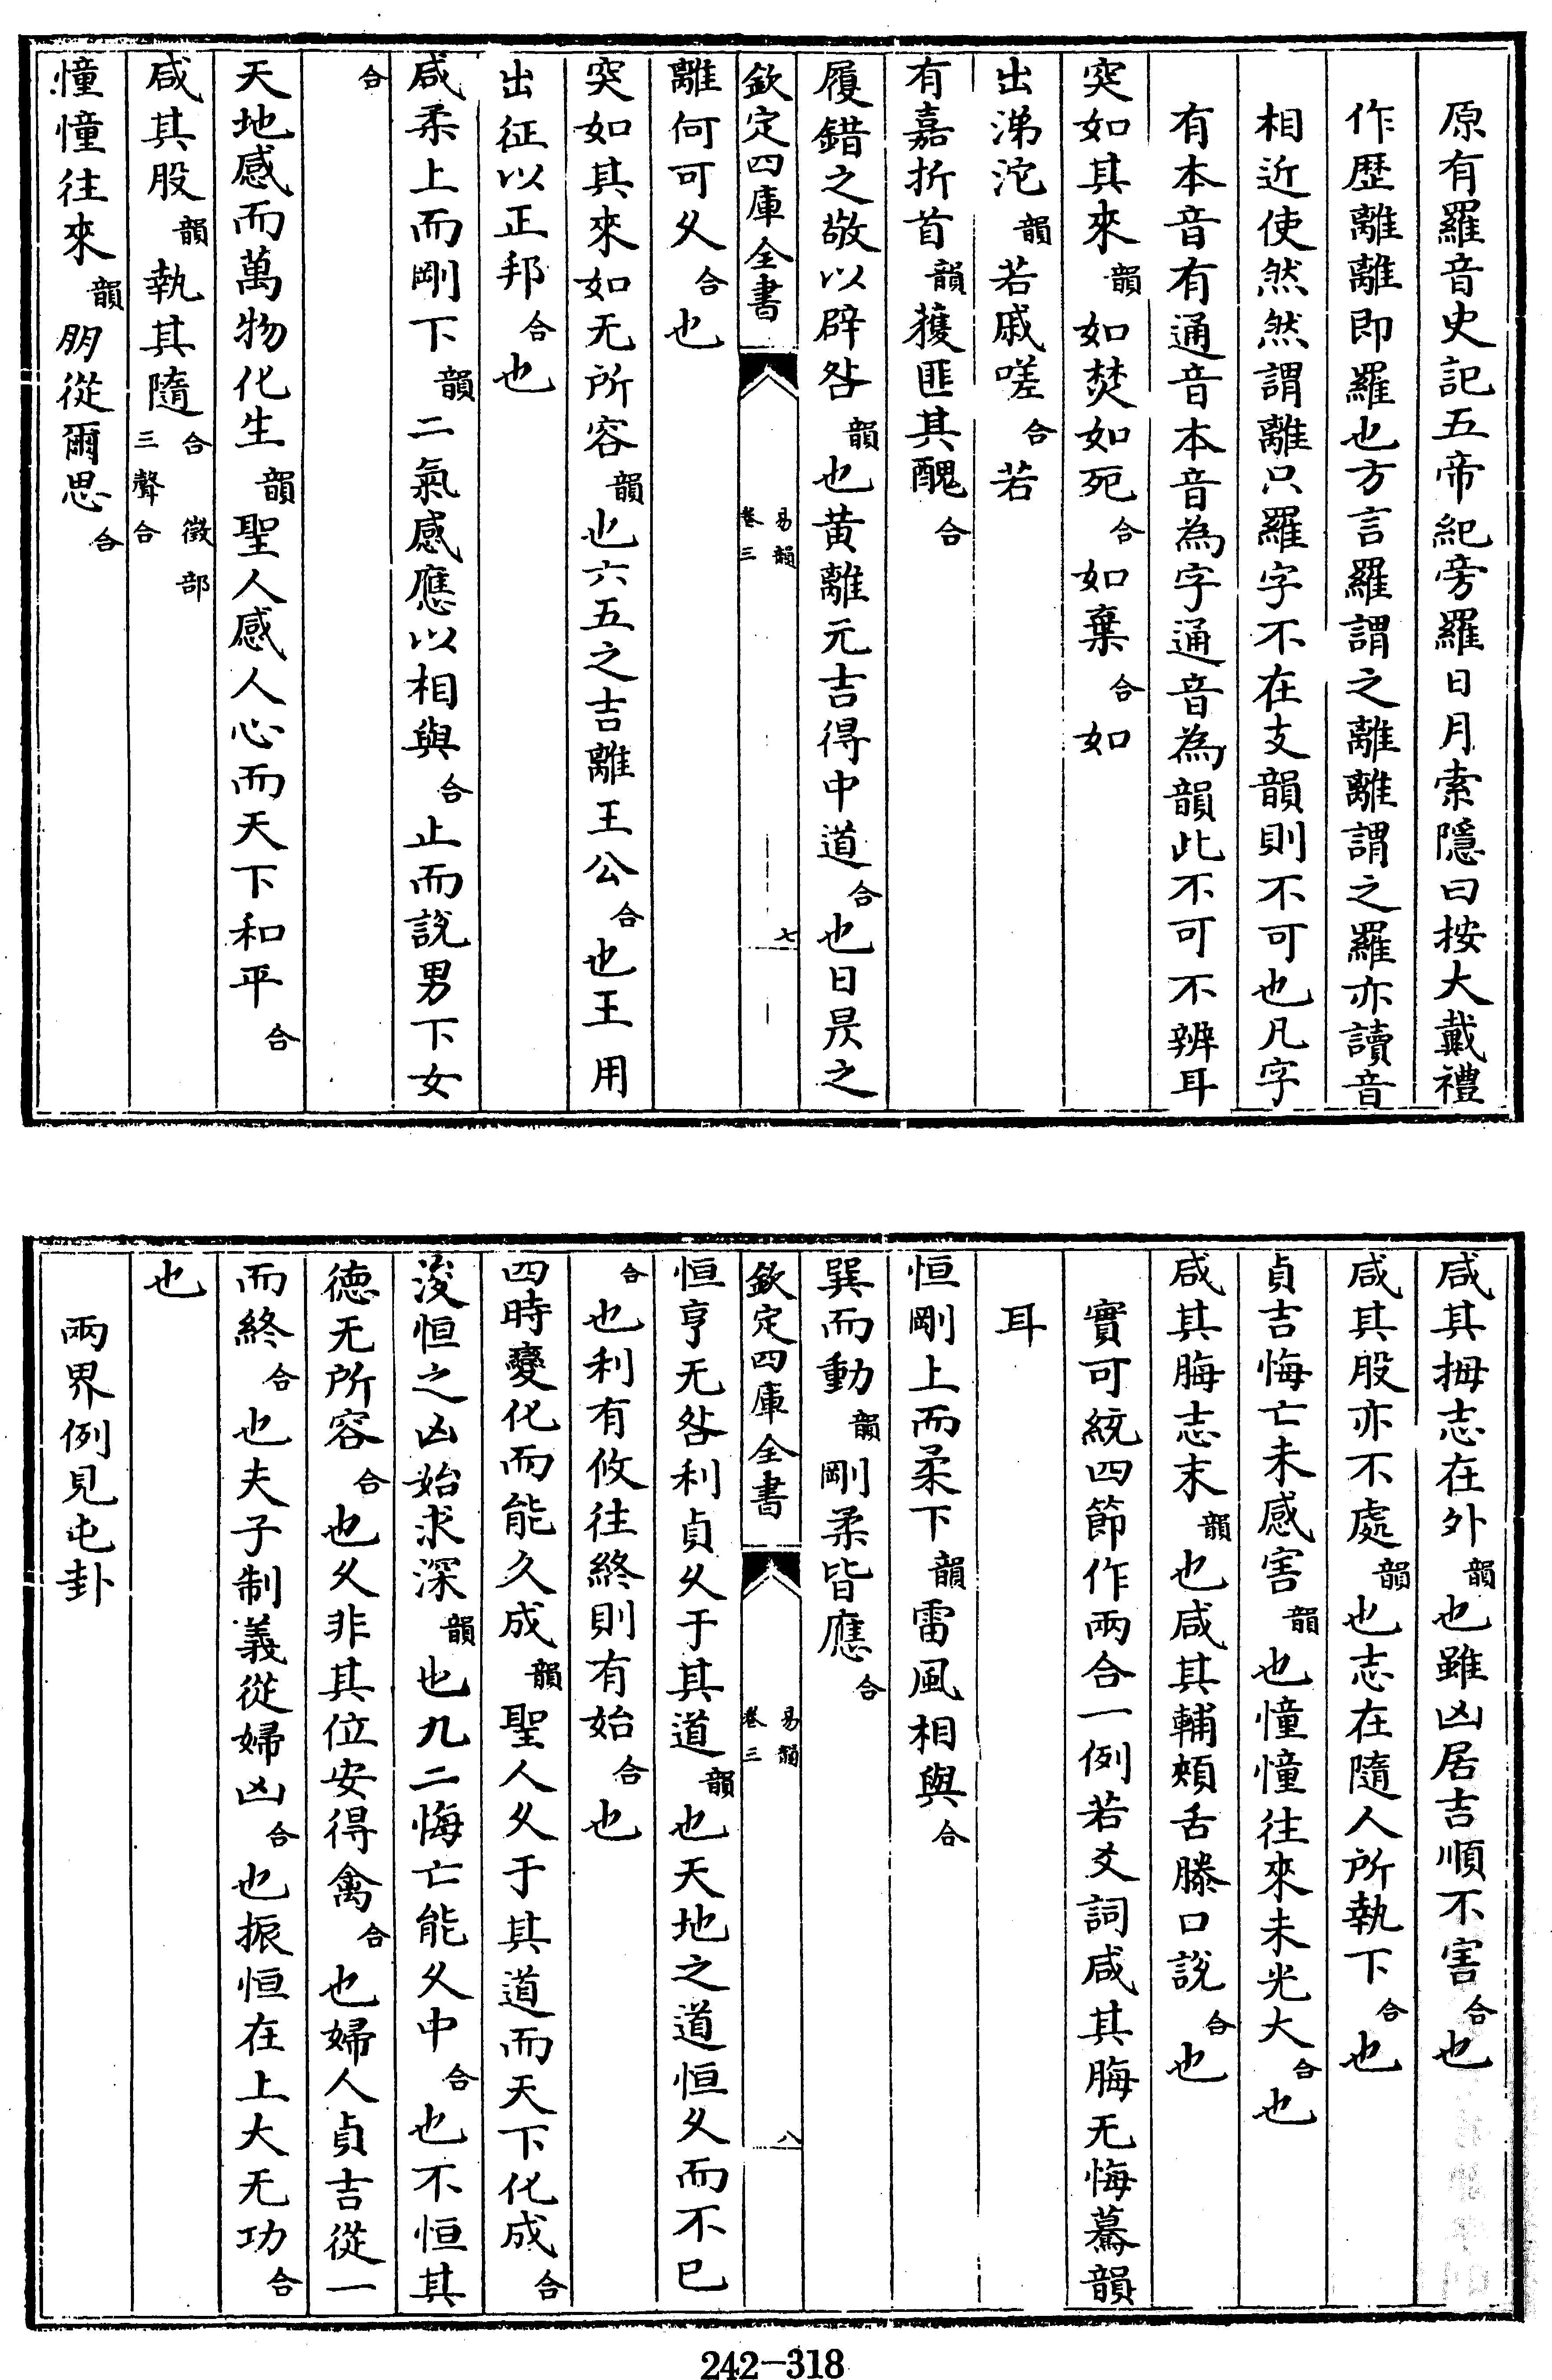 原有羅音史記五帝紀旁羅日月索隱曰按大戴禮
作歴離離即羅也方言羅謂之離離謂之羅亦讀音
相近使然然謂離只羅字不在支韻則不可也凡字
有本音有通音本音為字通音為韻此不可不辨耳
突如其來韻如焚如死合如棄合如
出涕沱韻若戚嗟合若
有嘉折首韻獲匪其醜合
履錯之敬以辟咎韻也黄離元吉得中道合也日昃之
欽定四庫全書 易韻卷三 七
離何可久合也
突如其來如无所容韻也六五之吉離王公合也王用
出征以正邦合也
咸柔上而剛下韻二氣感應以相與合止而說男下女
合
天地感而萬物化生韻聖人感人心而天下和平合
咸其股韻執其隨合徵部三聲合
憧憧往來韻朋從爾思合
咸其拇志在外韻也雖凶居吉順不害合也
咸其股亦不處韻也志在隨人所執下合也
貞吉悔亡未感害韻也憧憧往來未光大合也
咸其脢志末韻也咸其輔頰舌滕口說合也
實可統四節作兩合一例若爻詞咸其脢无悔驀韻
耳
恒剛上而柔下韻雷風相與合
巽而動韻剛柔皆應合
欽定四庫全書 易韻卷三 八
恒亨无咎利貞久于其道韻也天地之道恒久而不已
合也利有攸往終則有始合也
四時變化而能久成韻聖人久于其道而天下化成合
浚恒之凶始求深韻也九二悔亡能久中合也不恒其
徳无所容合也久非其位安得禽合也婦人貞吉從一
而終合也夫子制義從婦凶合也振恒在上大无功合
也
兩界例見屯卦
242-318